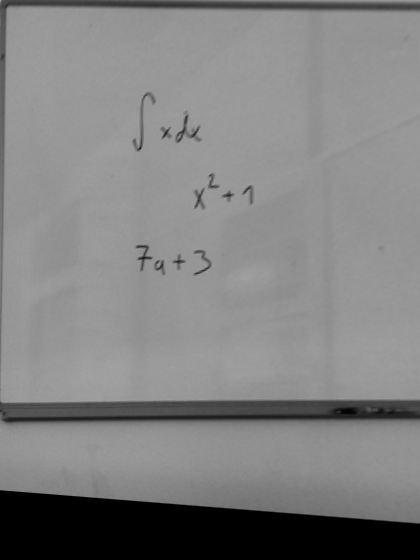 ∫xdx
x²+1
7a+3